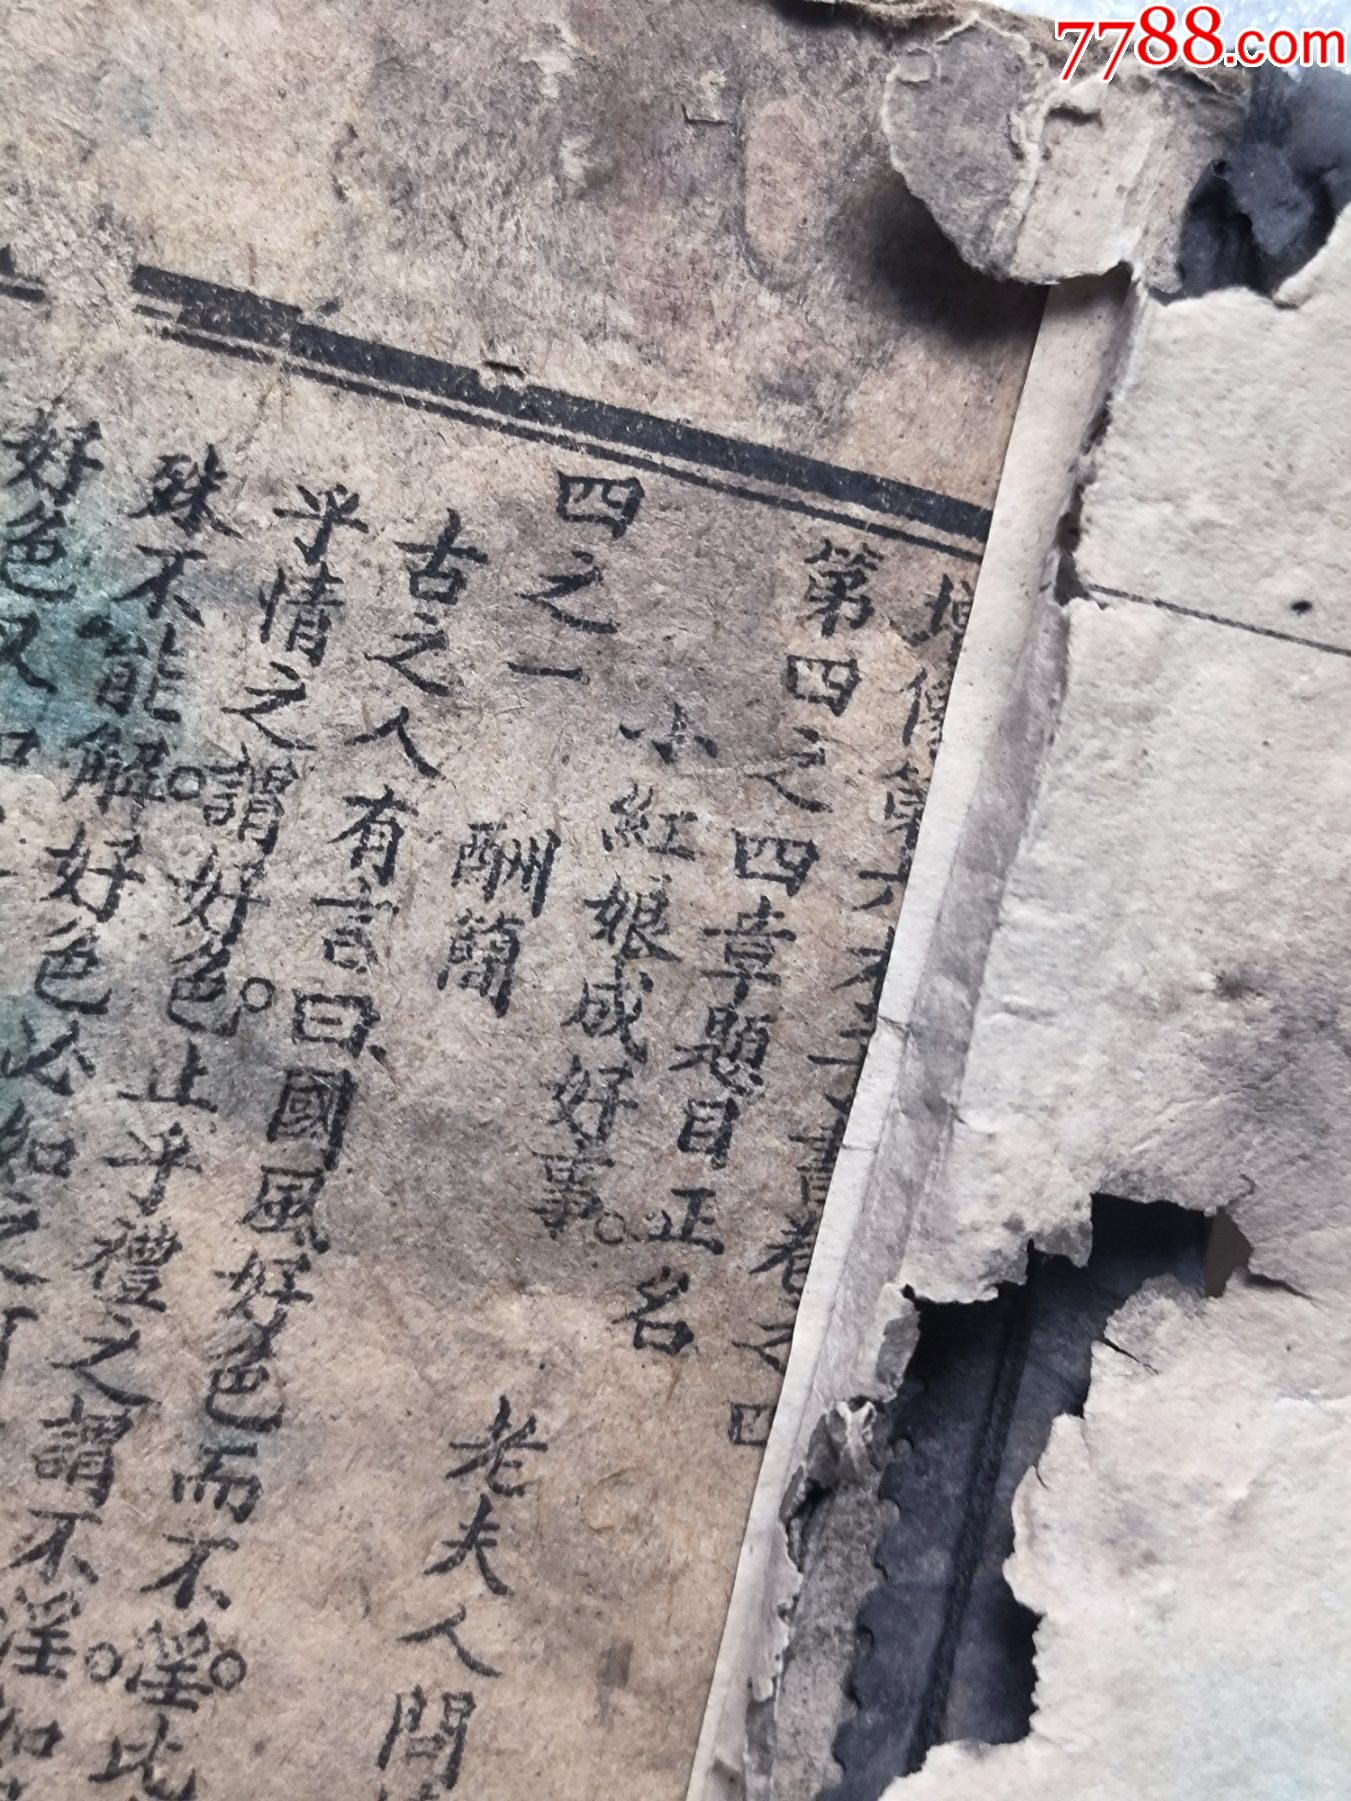 7788.com
增像第六才子書卷之四
第四之四章題目正名
小紅娘成好事。老夫人問
四之一 酬簡
古之人有言曰國風好色而不淫。比
乎情之謂好色。止乎禮之謂不淫
殊不能解。好色必
好色又